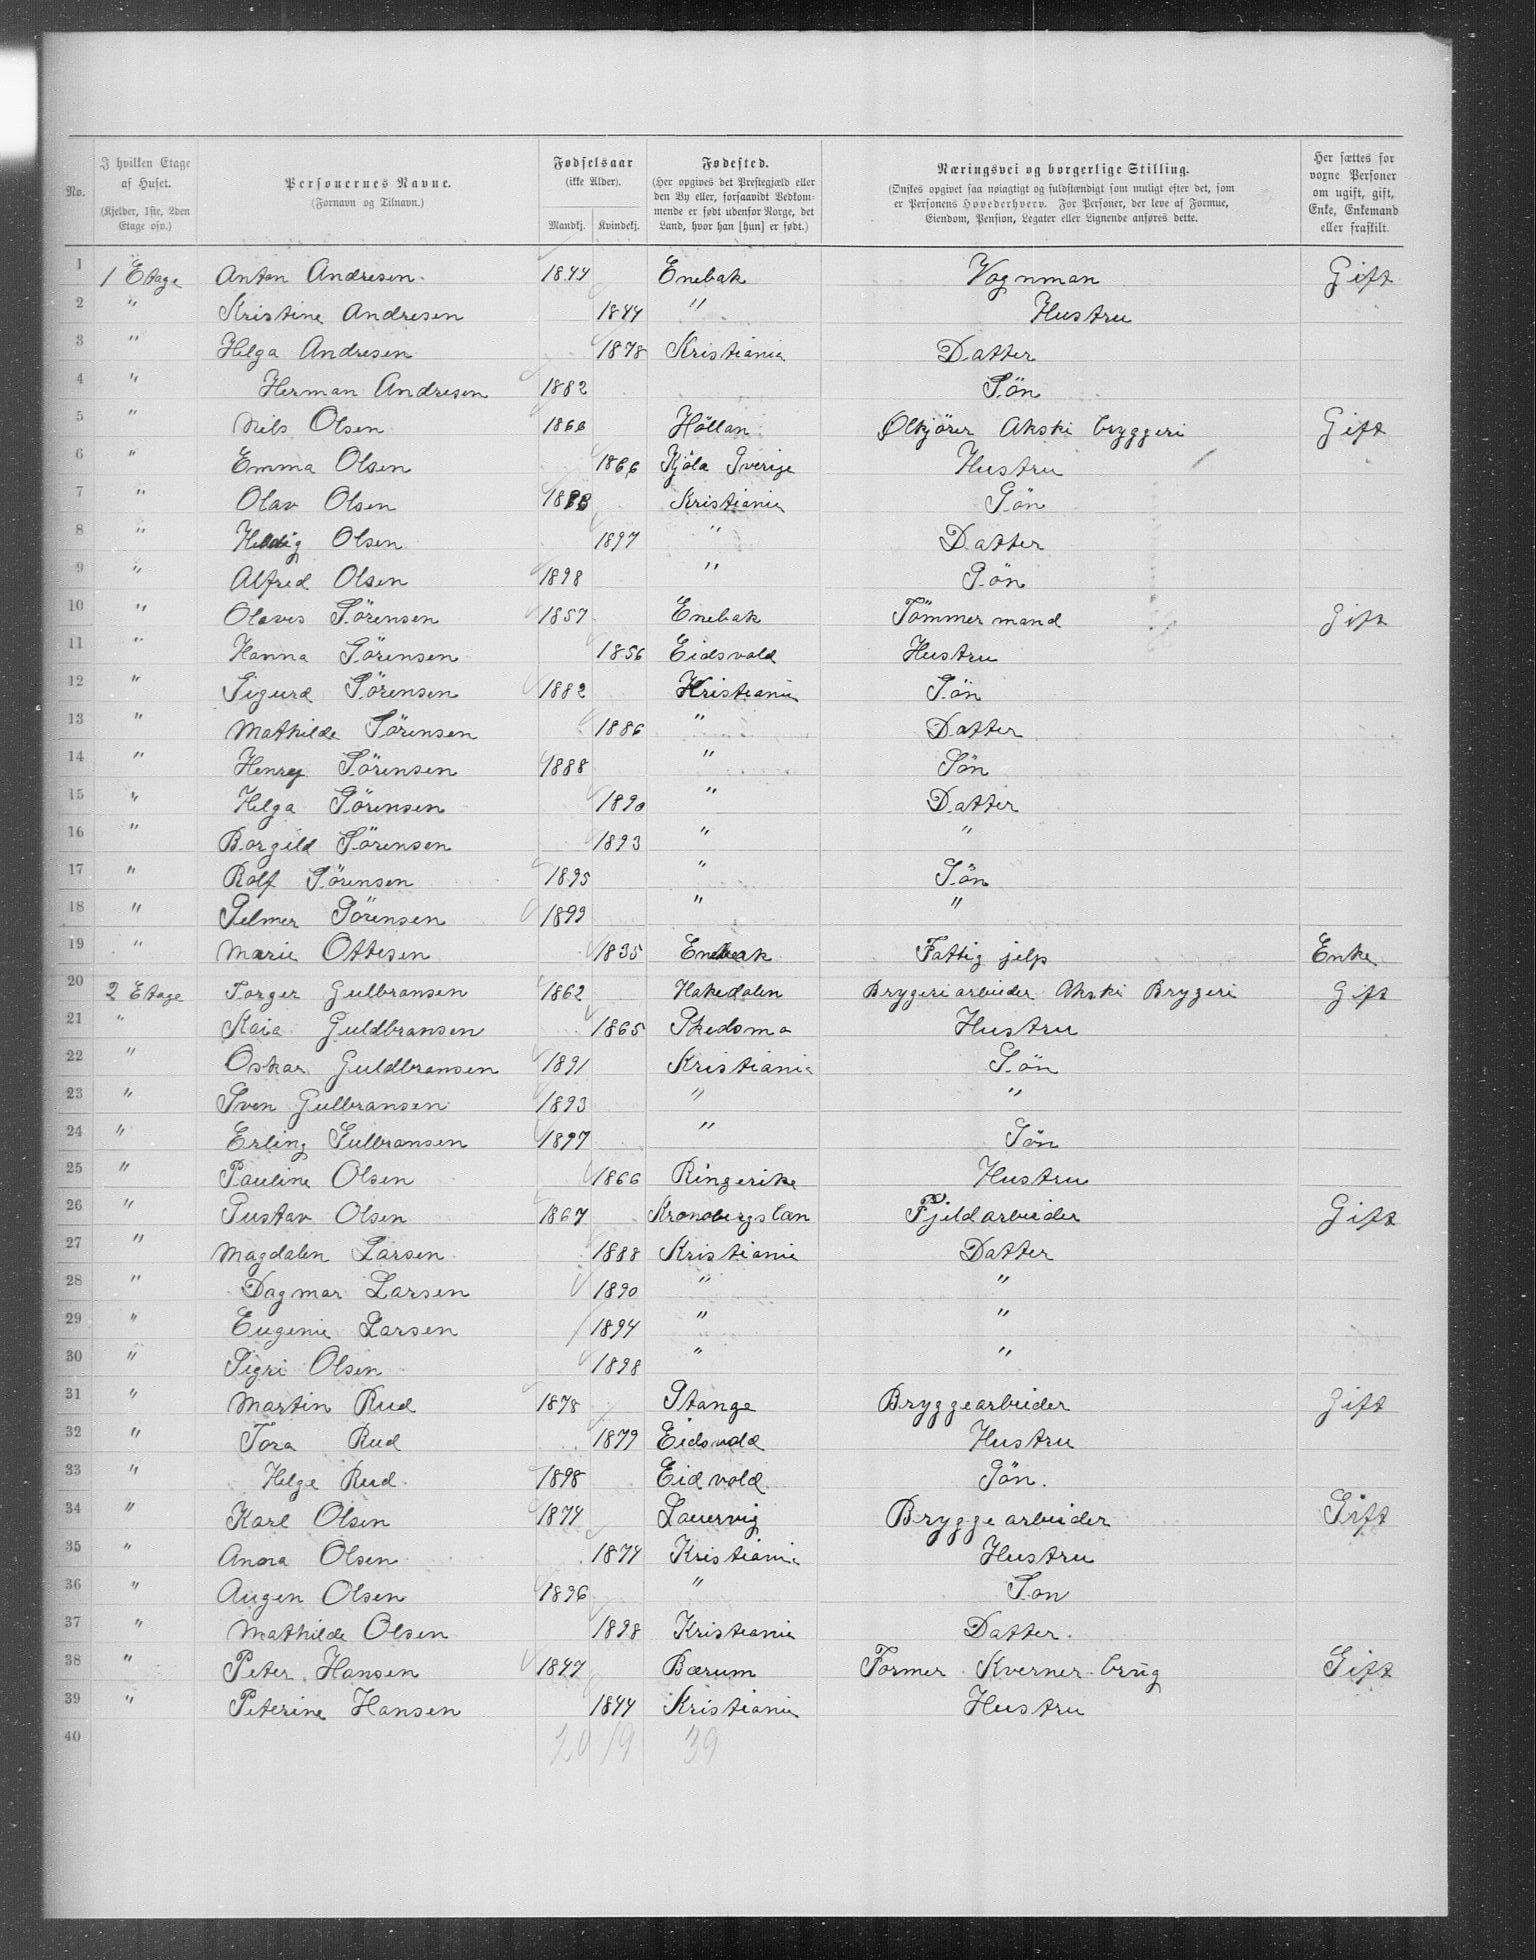 No.
I hvilken Etage af Huset.
(Kjelder, 1ste, 2den Etage osv.)
Personernes Navne.
(Fornavn og Tilnavn.)
Fødselsaar
(ikke Alder).
Mandkj. Kvindekj.
Fødested.
(Her opgives det Prestegjæld eller den By eller, forsaavidt Vedkommende er født udenfor Norge, det Land, hvor han [hun] er født.)
Næringsvei og borgerlige Stilling.
(Ønskes opgivet saa nøiagtigt og fuldstændigt som muligt efter det, som er Personens Hovederhverv. For Personer, der leve af Formue, Eiendom, Pension, Legater eller Lignende anføres dette.
Her sættes for voxne Personer om ugift, gift, Enke, Enkemand eller fraskilt.
1 1 Etage Anton Andresen 1844 Enebak Vognman Gift
2 " Kristine Andresen 1844 " Hustru
3 " Helga Andresen 1878 Kristiania Datter
4 " Herman Andresen 1882 Sön
5 " Nils Olsen 1866 Höllan Ølkjörer Akski bryggeri Gift
6 " Emma Olsen 1866 Kjöla Sverige Hustru
7 " Olav Olsen Kristiania Sön
8 " Olsen 1897 " Datter
9 " Alfred Olsen 1898 " Sön
10 " Olaves Sörensen 1857 Enebak Tömmermand Gift
11 " Hanna Sörensen 1856 Eidsvold Hustru
12 " Sigurd Sörensen 1882 Kristiania Sön
13 " Mathilde Sörensen 1886 " Datter
14 " Henrey Sörensen 1888 " Sön
15 " Helga Sörensen 1890 " Datter
16 " Borgild Sörensen 1893 " "
17 " Rolf Sörensen 1895 " Sön
18 " Selmer Sörensen 1899 " "
19 " Marie Ottesen 1835 Enebak Fattig jelp Enke
20 2 Etage Torger Gulbransen 1862 Hakedalen Brygeriarbeider Akski Brygeri Gift
21 " Kaia Guldbransen 1865 Skedsmo Hustru
22 " Oskar Guldbransen 1891 Kristiania Sön
23 " Sven Gulbransen 1893 " "
24 " Erling Gulbransen 1897 " Sön
25 " Pauline Olsen 1866 Ringerike Hustru
26 " Gustav Olsen 1867 Kronobergslan Fjeldarbeider Gift
27 " Magdalen Larsen 1888 Kristiania Datter
28 " Dagmar Larsen 1890 " "
29 " Eugenie Larsen 1894 " "
30 " Sigri Olsen 1898 " "
31 " Martin Rud 1878 Stange Bryggearbeider Gift
32 " Tora Rud 1879 Eidsvold Hustru
33 " Helge Rud 1898 Eidvold Sön.
34 " Karl Olsen 1874 Lauervig Bryggearbeider Gift
35 " Anna Olsen 1874 Kristiania Hustru
36 " Augen Olsen 1896 " Son
37 " Mathilde Olsen 1898 Kristiania Datter.
38 " Peter Hansen 1847 Bærum Former Kverner brug Gift
39 " Peterine Hansen 1844 Kristiania Hustru
40 20 19 39